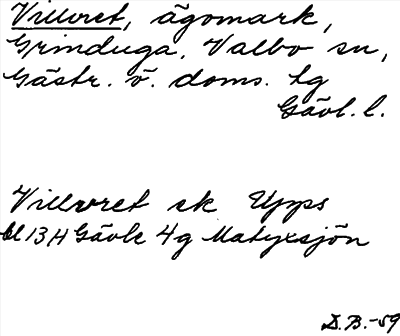 Villvret, ägomark,
Grinduga, Valbo sn,
Gästr. ö. doms. tg
Gävl. l.
Villvret ek Upps
bl 13 H Gävle 4g Matyxsjön
D.B.-59